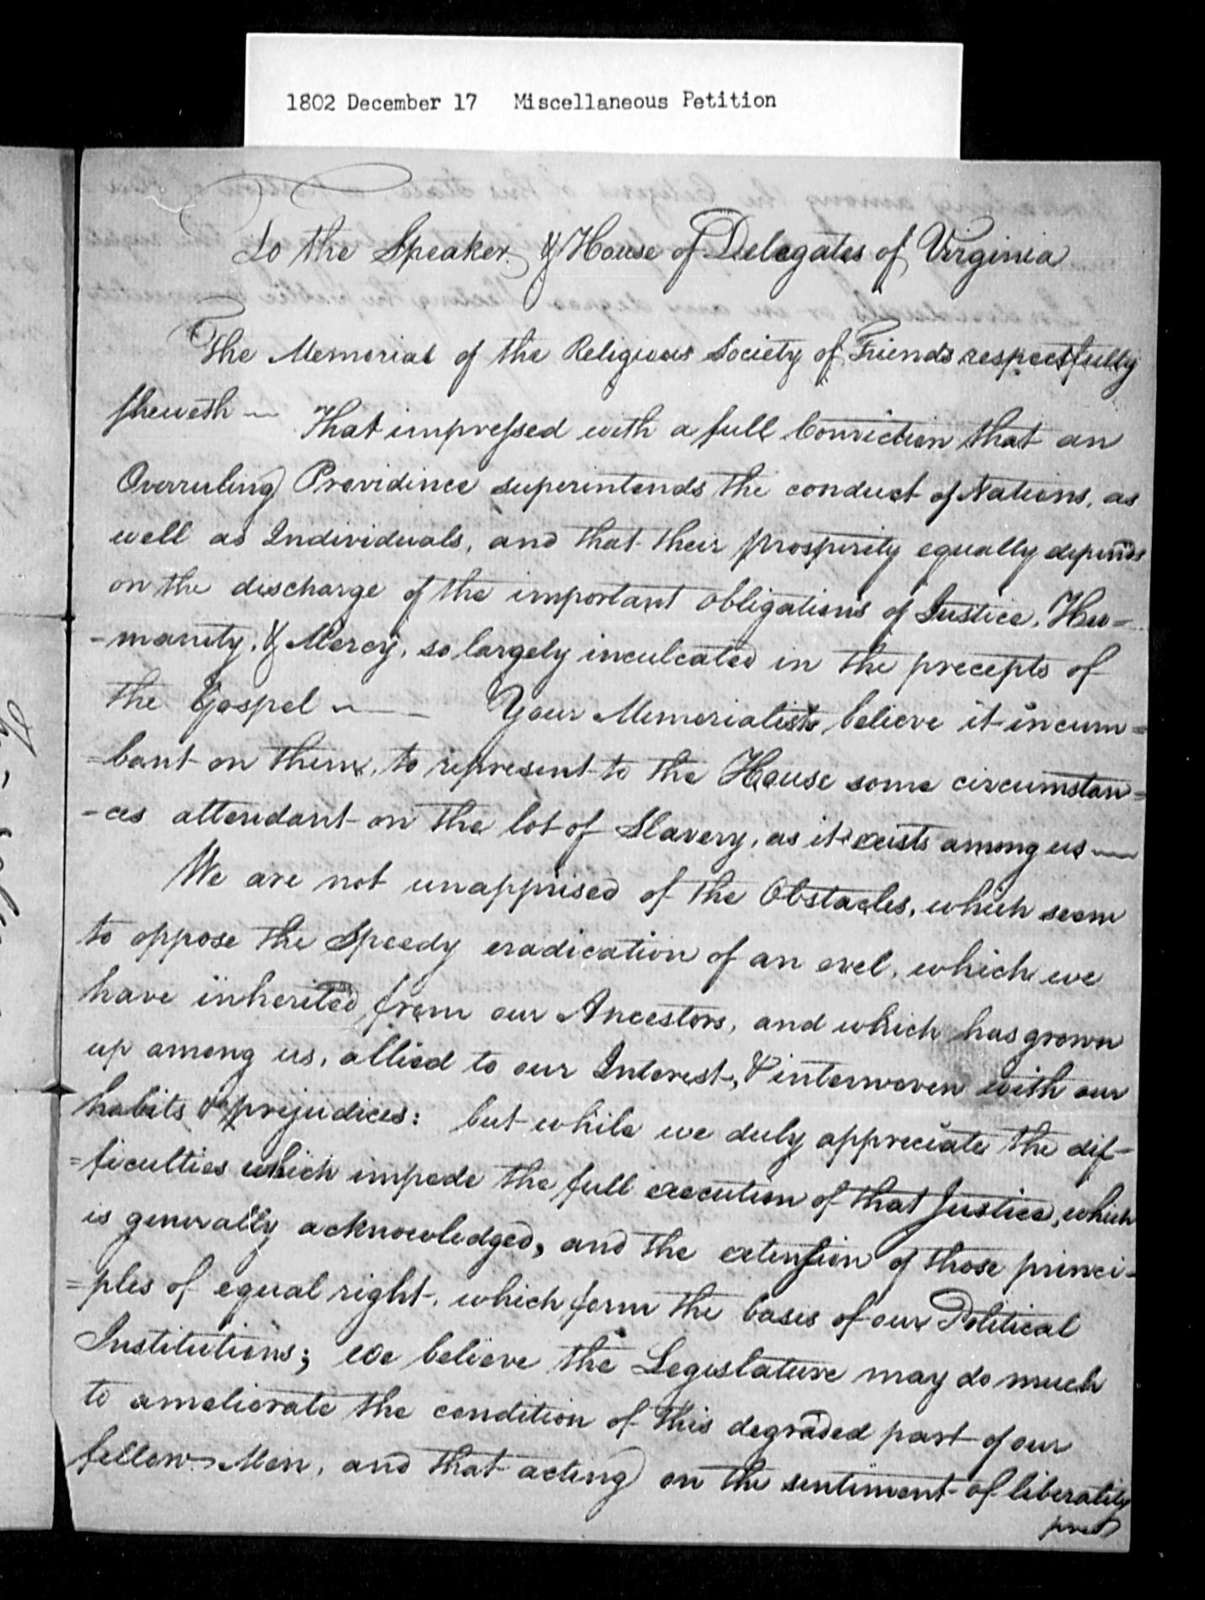 1802 December 17 Miscellaneous Petition
To the Speaker & House of Delegates of Virginia
The Memorial of the Religious Society of Friends respectfully
sheweth — That impressed with a full Conviction that an
Overruling Providince superintends the conduct of Nations, as
well as Individuals, and that their prosperity equally depends
on the discharge of the important obligations of Justice, Hu=
-manity, & Mercy, so largely inculcated in the precepts of
the Gospel — Your Memorialists believe it incum=
=bant on them, to represent to the House some circumstan=
-ces attendant on the lot of Slavery, as it exists among us —
We are not unapprised of the Obstacles, which seem
to oppose the Speedy eradication of an evel, which we
have inherited from our Ancestors, and which has grown
up among us, allied to our Interest, & interwoven with our
habits & prejudices: but while we duly appreciate the dif-
=ficulties which impede the full execution of that Justice, which
is generally acknowledged, and the extension of those princi-
=ples of equal right, which form the basis of our Political
Institutions; we believe the Legislature may do much
to ameliorate the condition of this degraded part of our
fellow Men, and that acting on the sentiment of liberality